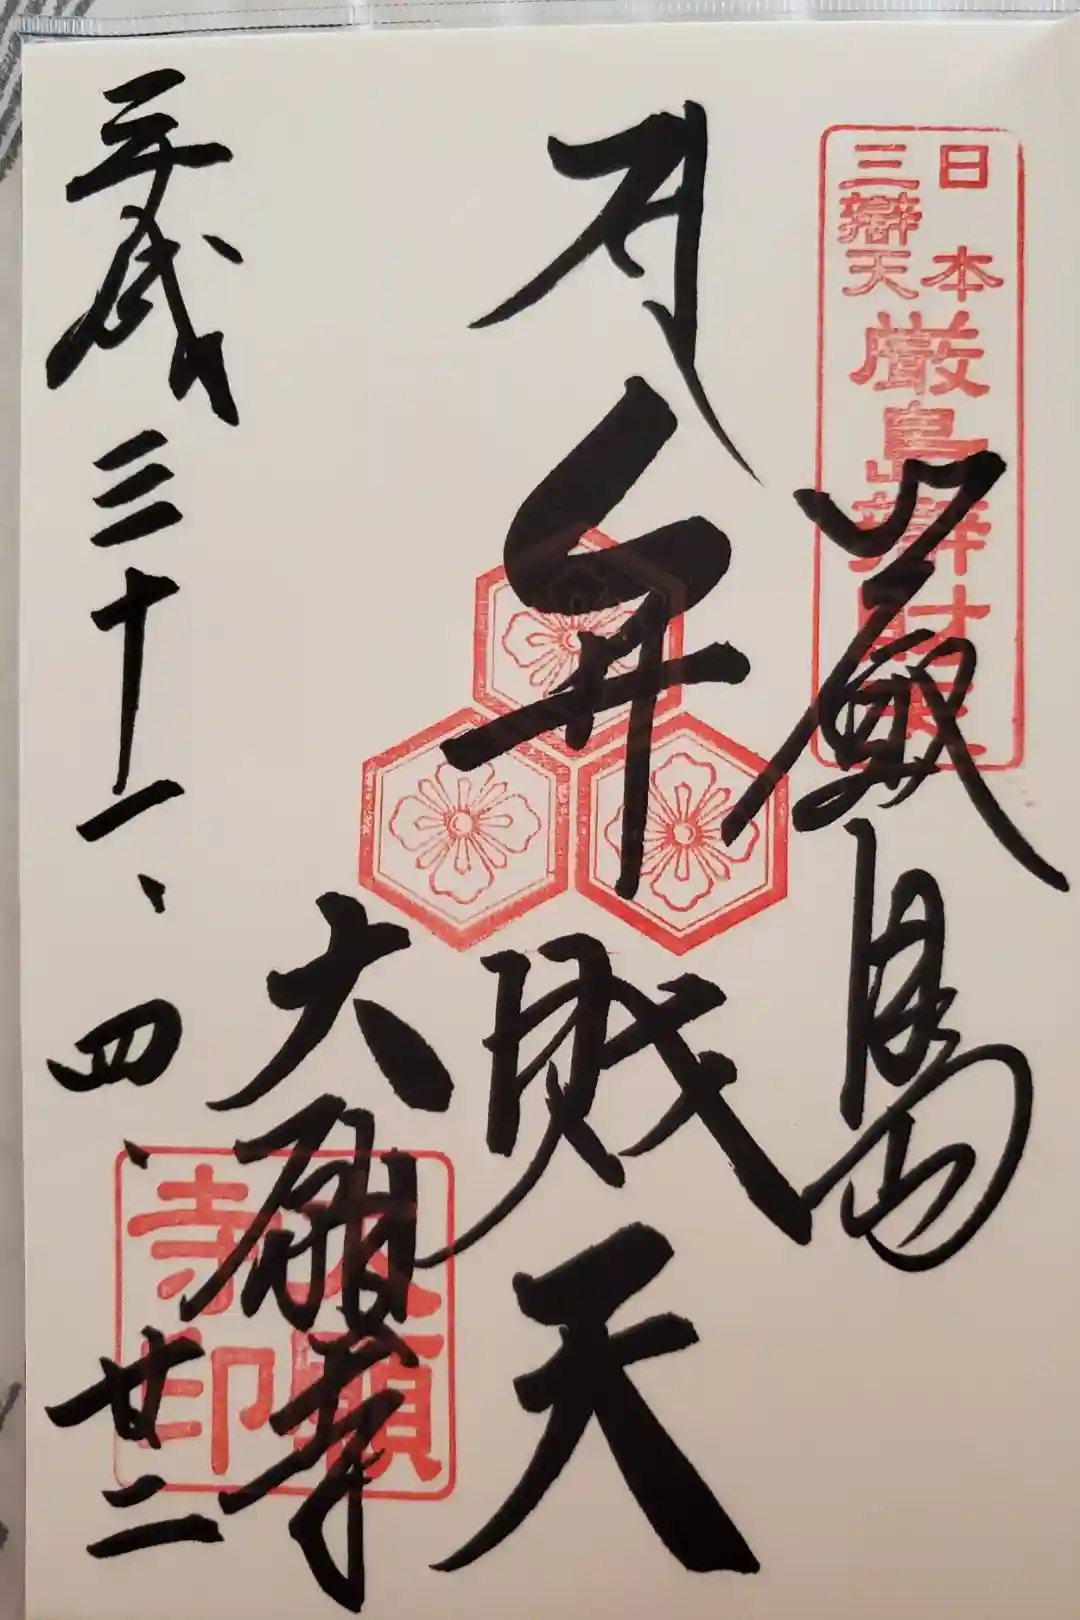 日本
三辯天
厳島辯財天
厳島
弁財天
大願寺
大願
寺印
平成三十一、四、廿二